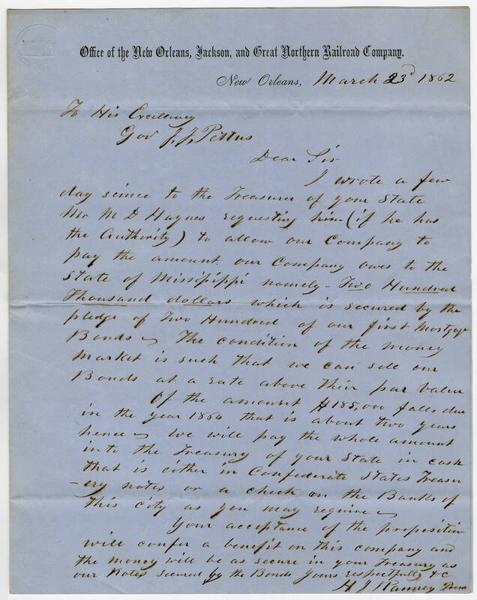 Office of the New Orleans, Jackson, and Great Northern Railroad Company.
New Orleans, March 23d 1862
To His Excellency
Gov J. J. Pettus
Dear Sir
I wrote a few
day scince to the Treasurer of your State
Mr M D Haynes requesting him (if he has
the Authority) to allow our Company to
pay the amount our Company owes to the
State of Missippi namely - Two Hundred
Thousand dollars which is secured by the
pledge of Two Hundred of our first Mortgage
Bonds - The condition of the money
Market is such that we can sell our
Bonds at a rate above their par value
Of the amount $185,000 falls due
in the year 1864 that is about two years
hence - We will pay the whole amount
into the Treasury of your State in cash
that is either in Confederate States Treasu
-ery notes or a check on the Banks of
this city as you may require -
Your acceptance of the proposition
will confer a benefit on this company and
the money will be as secure in your Treasury as
our Notes secured by the Bonds Yours respectfully &c
H J Ranney Prest